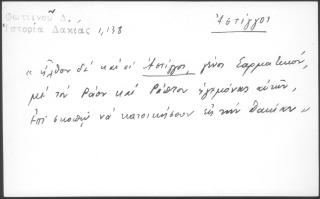 Φωτεινοῦ Δ.,
Ἱστορία Δακίας 1,138
Ἀστίγγοι
" ἦλθον δέ καί οἱ Ἀστίγγοι, γένος Σαρματικόν,
μέ τόν Ράον καί Ράπτον ἡγεμόνας αὐτῶν,
ἐπί σκοπῷ νά κατοικήσουν εἰς τήν Δακίαν "